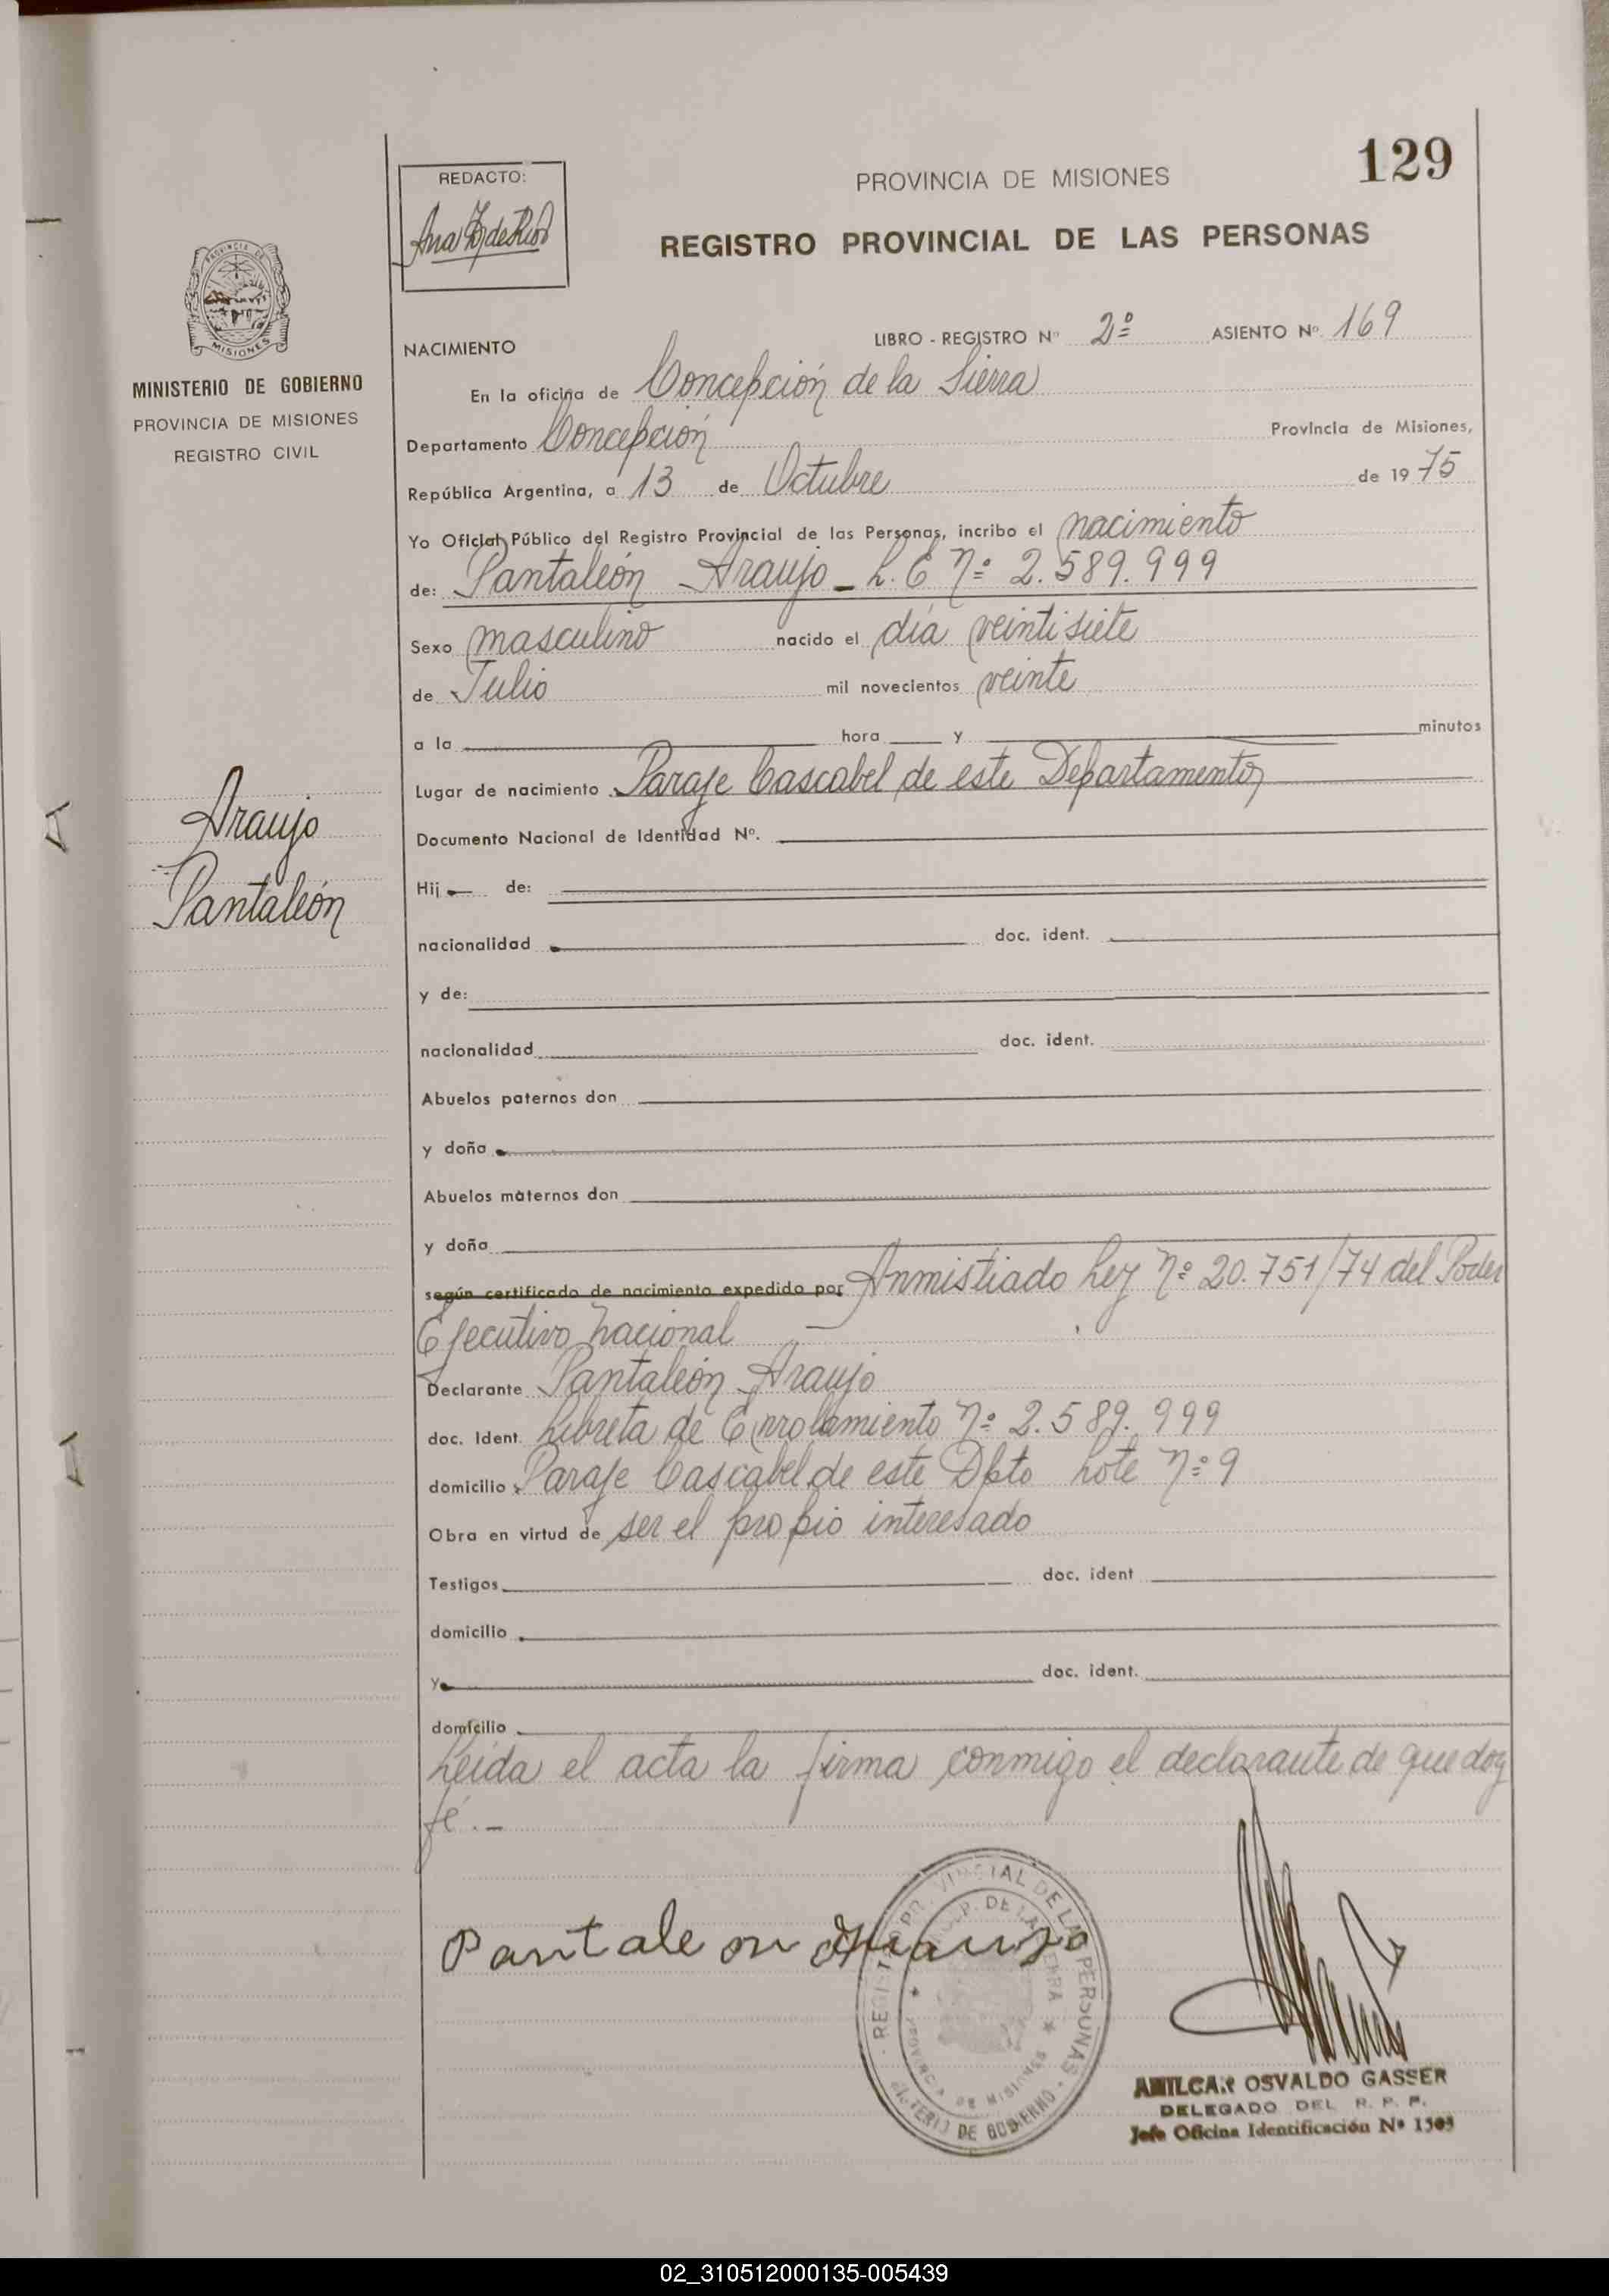 129
REDACTO:
PROVINCIA DE MISIONES
REGISTRO PROVINCIAL DE LAS PERSONAS
PROVINCIA DE
MISIONES
MINISTERIO DE GOBIERNO
PROVINCIA DE MISIONES
REGISTRO CIVIL
LIBRO - REGISTRO Nº 2º ASIENTO Nº 169
NACIMIENTO
En la oficina de Concepción de la Sierra
Departamento Concepción Provincia de Misiones,
República Argentina, a 13 de Octubre de 1975
Yo Oficial Público del Registro Provincial de las Personas, incribo el nacimiento
de: Pantaleón Araujo - L. E Nº 2.589.999
Sexo masculino nacido el día veintisiete
de Julio mil novecientos veinte
a la hora y minutos
Lugar de nacimiento Paraje Cascabel de este Departamento
Documento Nacional de Identidad Nº.
Araujo
Pantaleón
Hij de:
nacionalidad doc. ident.
y de:
nacionalidad doc. ident.
Abuelos paternos don
y doña
Abuelos maternos don
y doña
según certificado de nacimiento expedido por Anmistiado Ley Nº 20.751/74 del Poder
Ejecutivo Nacional
Declarante Pantaleón Araujo
doc. Ident. Libreta de Enrolamiento Nº 2.589.999
domicilio Paraje Cascabel de este Dpto Lote Nº 9
Obra en virtud de ser el propio interesado
Testigos doc. ident
domicilio
y doc. ident.
domicilio
Leida el acta la firma conmigo el declarante de que doy
fé.-
Pantaleon Araujo
AMILCAR OSVALDO GASSER
DELEGADO DEL R. P. P.
Jefe Oficina Identificación Nº 1505
02_310512000135-005439